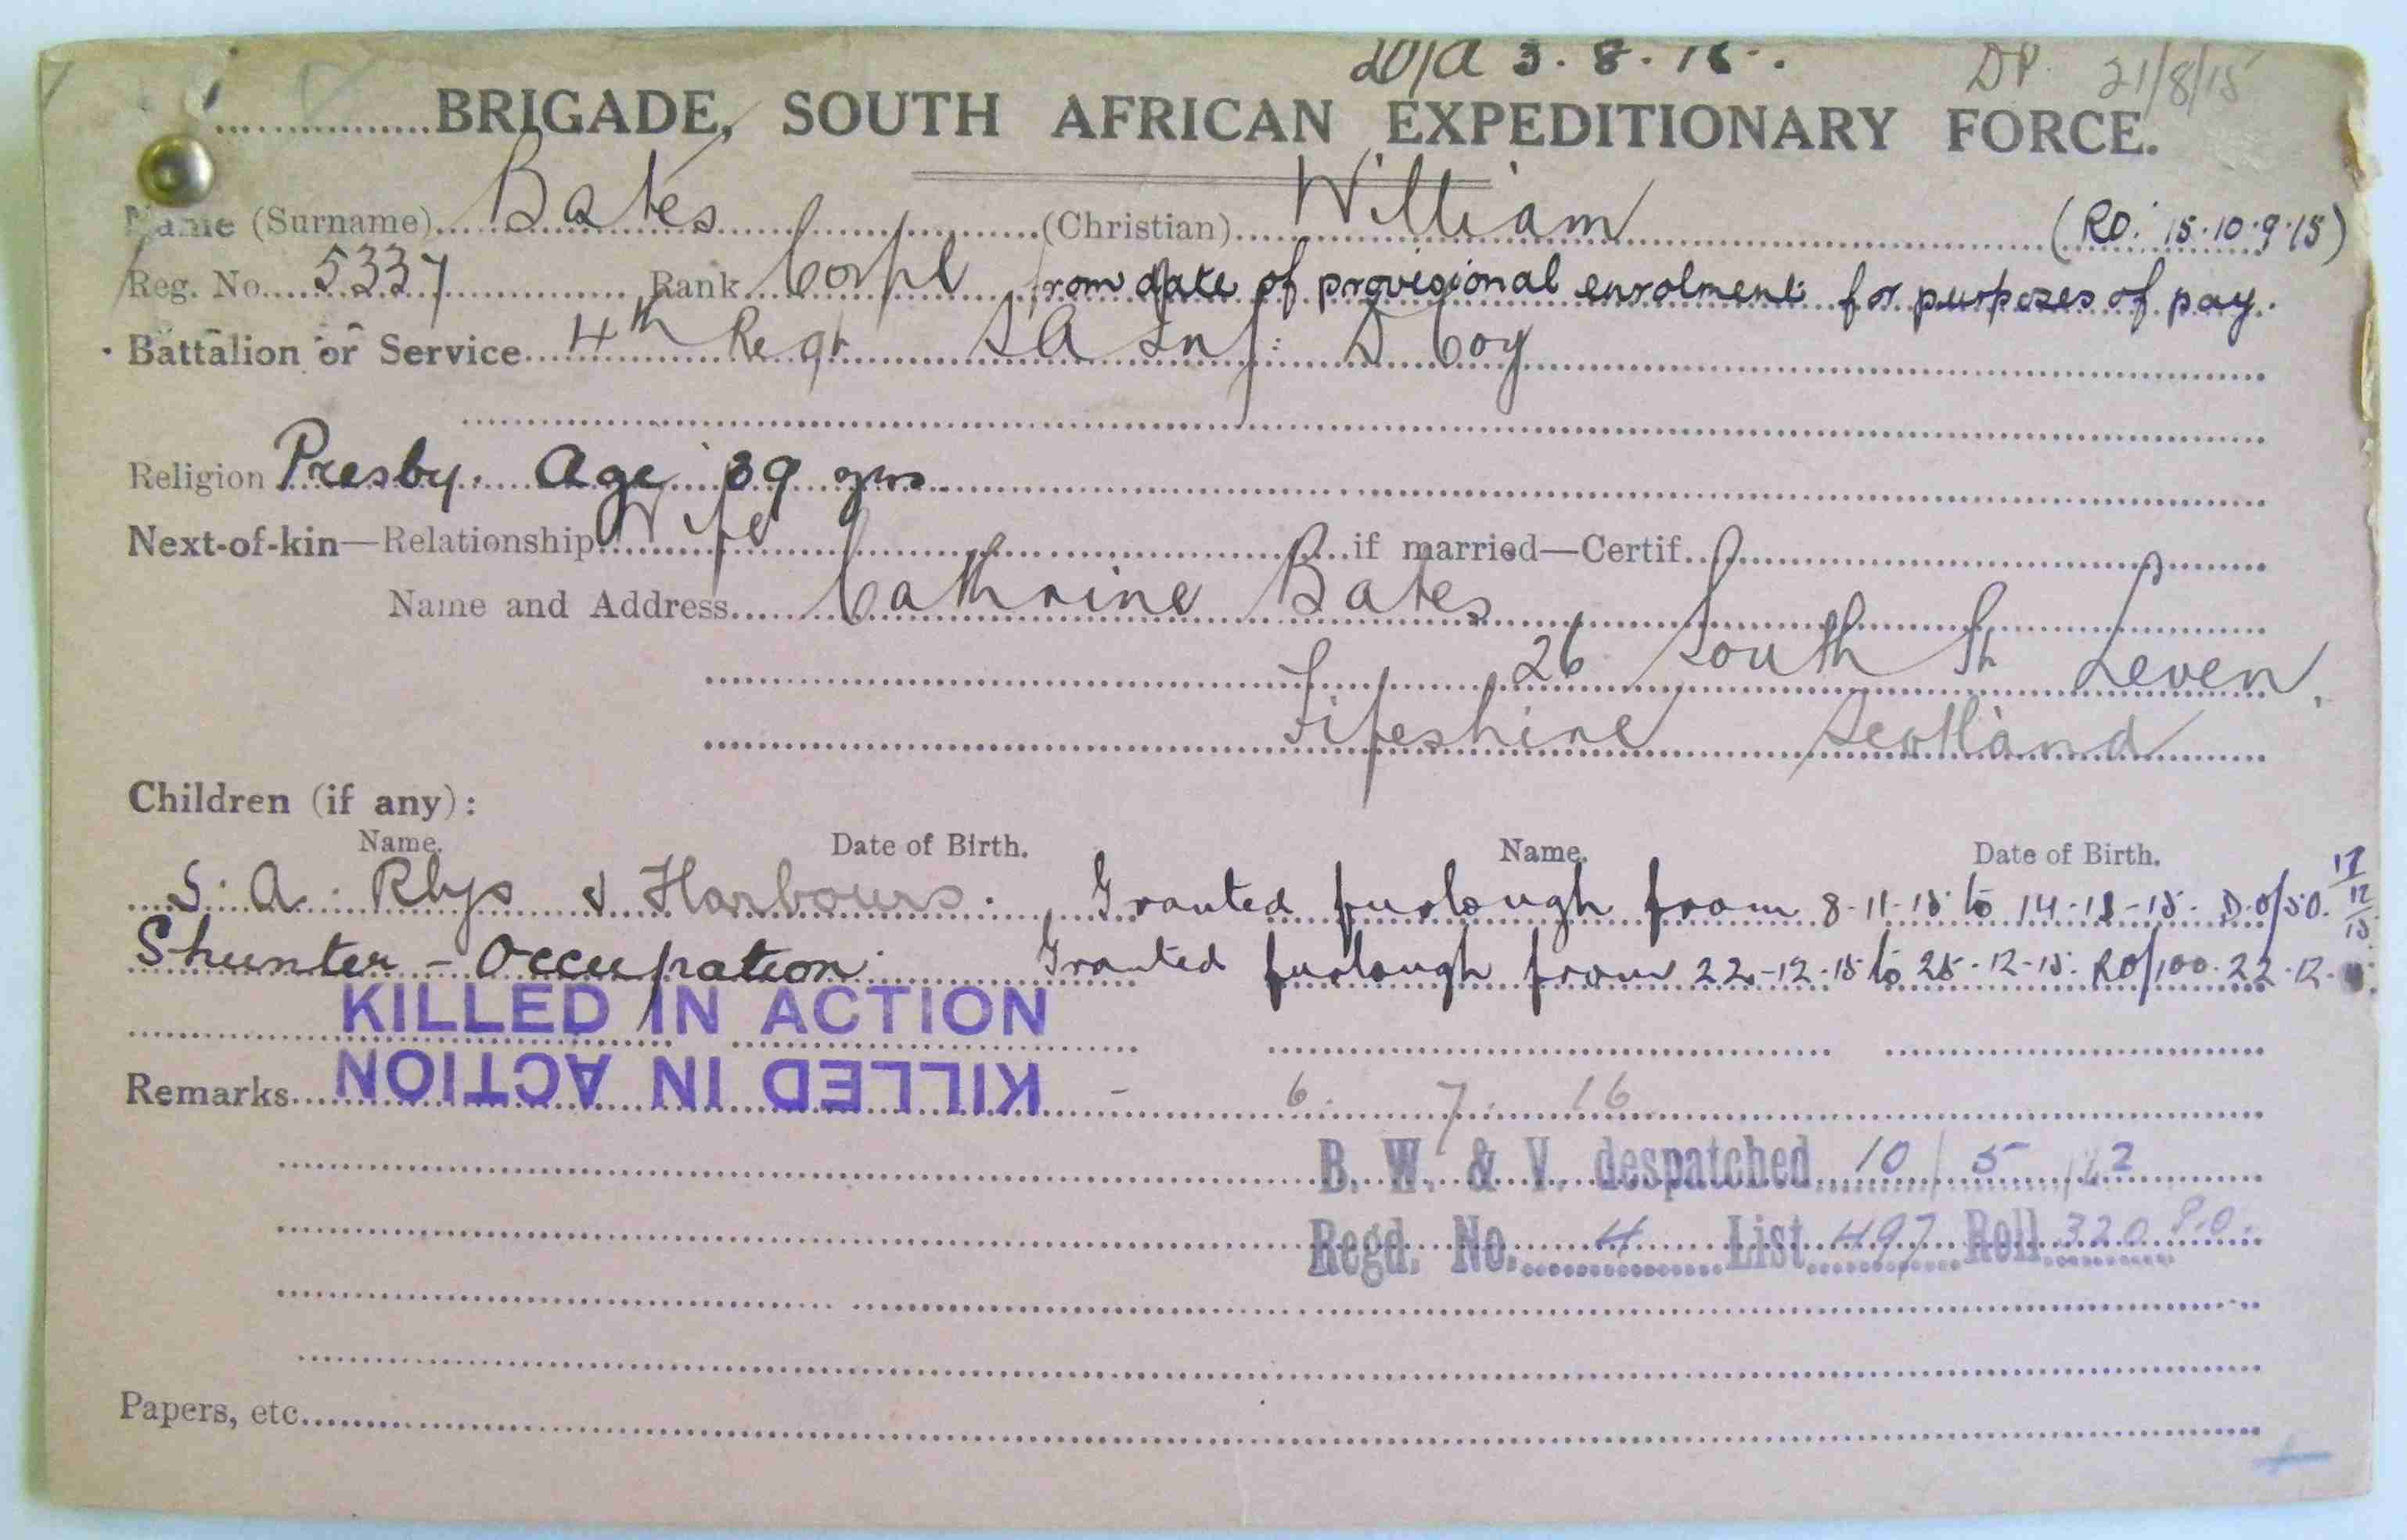 D/A 3.8.15. DP. 21/8/15
BRIGADE, SOUTH AFRICAN EXPEDITIONARY FORCE.
Name (Surname) Bates (Christian) William (RO. 15.10.9.15)
Reg. No. 5337 Rank Corpl from date of provisional enrolment for purposes of pay.
Battalion or Service 4th Regt SA Inf: D Coy
Religion Presby. Age 39 yrs
Next-of-kin—Relationship Wife if married—Certif.
Name and Address Cathrine Bates
26 South St Leven,
Fifeshire Scotland
Children (if any):
Name. Date of Birth. Name. Date of Birth.
S. A. Rlys & Harbours. Granted furlough from 8-11-15 to 14-11-15. D.O/50. 17/12/15
Shunter - Occupation. Granted furlough from 22-12-15 to 25-12-15. RO/100. 22-12-
KILLED IN ACTION
Remarks KILLED IN ACTION - 6. 7. 16
B. W. & V. despatched 10/5/22
Regd. No. 4 List 497 Roll 320 P.O.
Papers, etc.